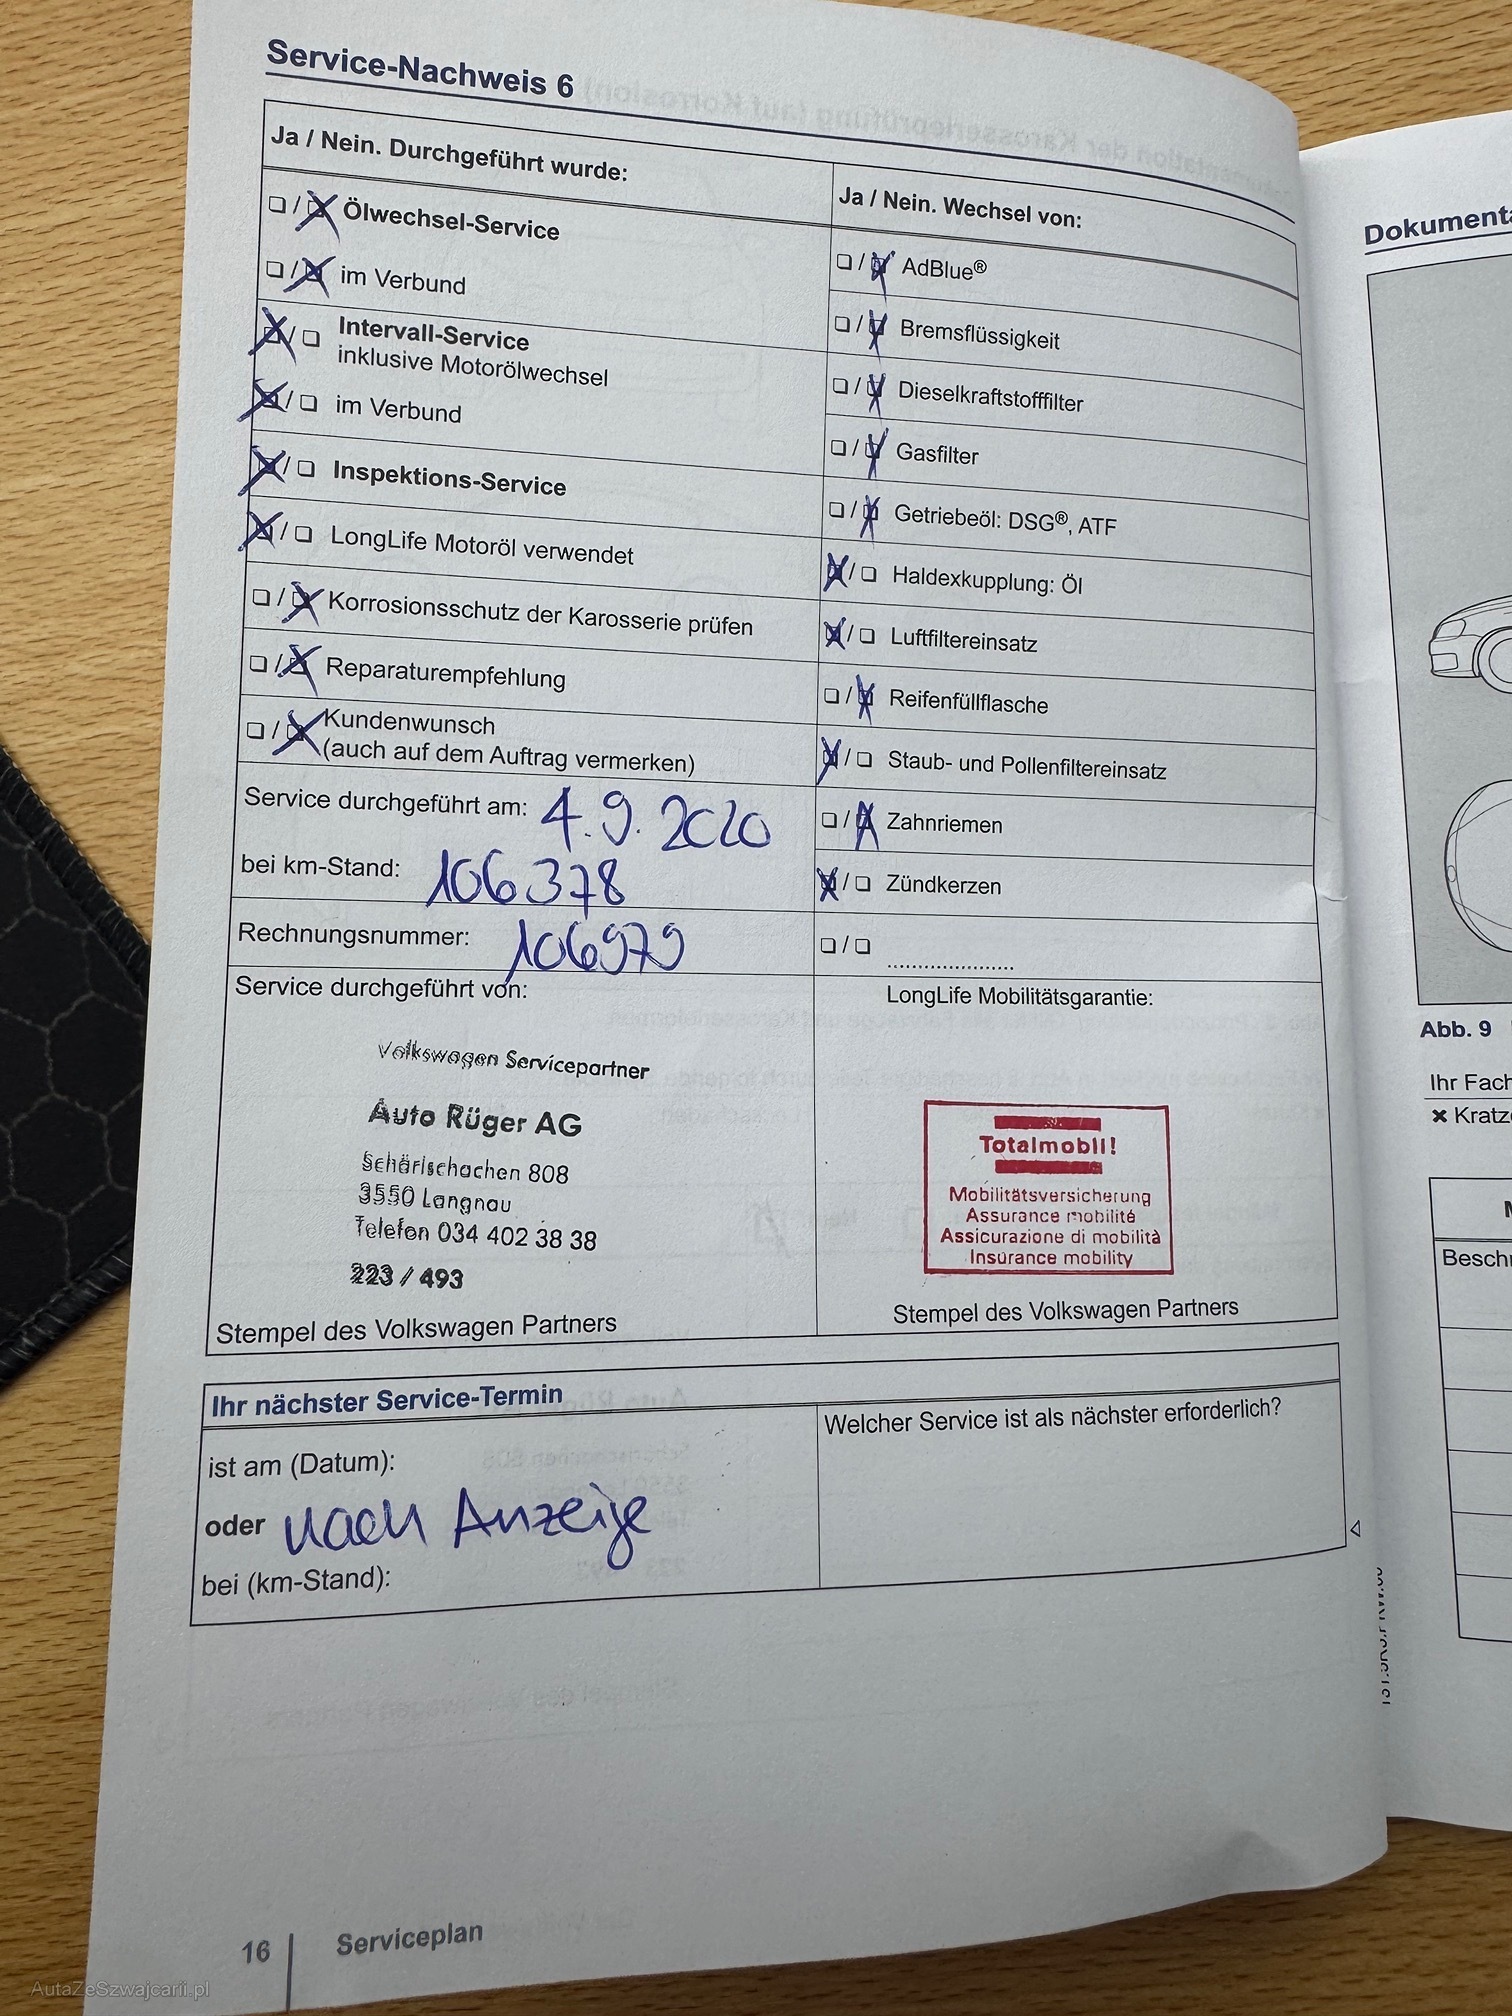 Service-Nachweis 6
Ja / Nein. Durchgeführt wurde:
❏ / ❏ Ölwechsel-Service
❏ / ❏ im Verbund
❏ / ❏ Intervall-Service
inklusive Motorölwechsel
❏ / ❏ im Verbund
❏ / ❏ Inspektions-Service
❏ / ❏ LongLife Motoröl verwendet
❏ / ❏ Korrosionsschutz der Karosserie prüfen
❏ / ❏ Reparaturempfehlung
❏ / ❏ Kundenwunsch
(auch auf dem Auftrag vermerken)
Service durchgeführt am: 4.9.2020
bei km-Stand: 106378
Rechnungsnummer: 106979
Service durchgeführt von:
Volkswagen Servicepartner
Auto Rüger AG
Schärlschachen 808
3550 Langnau
Telefon 034 402 38 38
223 / 493
Stempel des Volkswagen Partners
Ja / Nein. Wechsel von:
❏ / ❏ AdBlue®
❏ / ❏ Bremsflüssigkeit
❏ / ❏ Dieselkraftstofffilter
❏ / ❏ Gasfilter
❏ / ❏ Getriebeöl: DSG®, ATF
❏ / ❏ Haldexkupplung: Öl
❏ / ❏ Luftfiltereinsatz
❏ / ❏ Reifenfüllflasche
❏ / ❏ Staub- und Pollenfiltereinsatz
❏ / ❏ Zahnriemen
❏ / ❏ Zündkerzen
❏ / ❏ .....................
LongLife Mobilitätsgarantie:
Totalmobil!
Mobilitätsversicherung
Assurance mobilité
Assicurazione di mobilità
Insurance mobility
Stempel des Volkswagen Partners
Ihr nächster Service-Termin
ist am (Datum):
oder nach Anzeige
bei (km-Stand):
Welcher Service ist als nächster erforderlich?
16 Serviceplan
Abb. 9
Ihr Fach
✖ Kratz
AutaZeSzwajcarii.pl